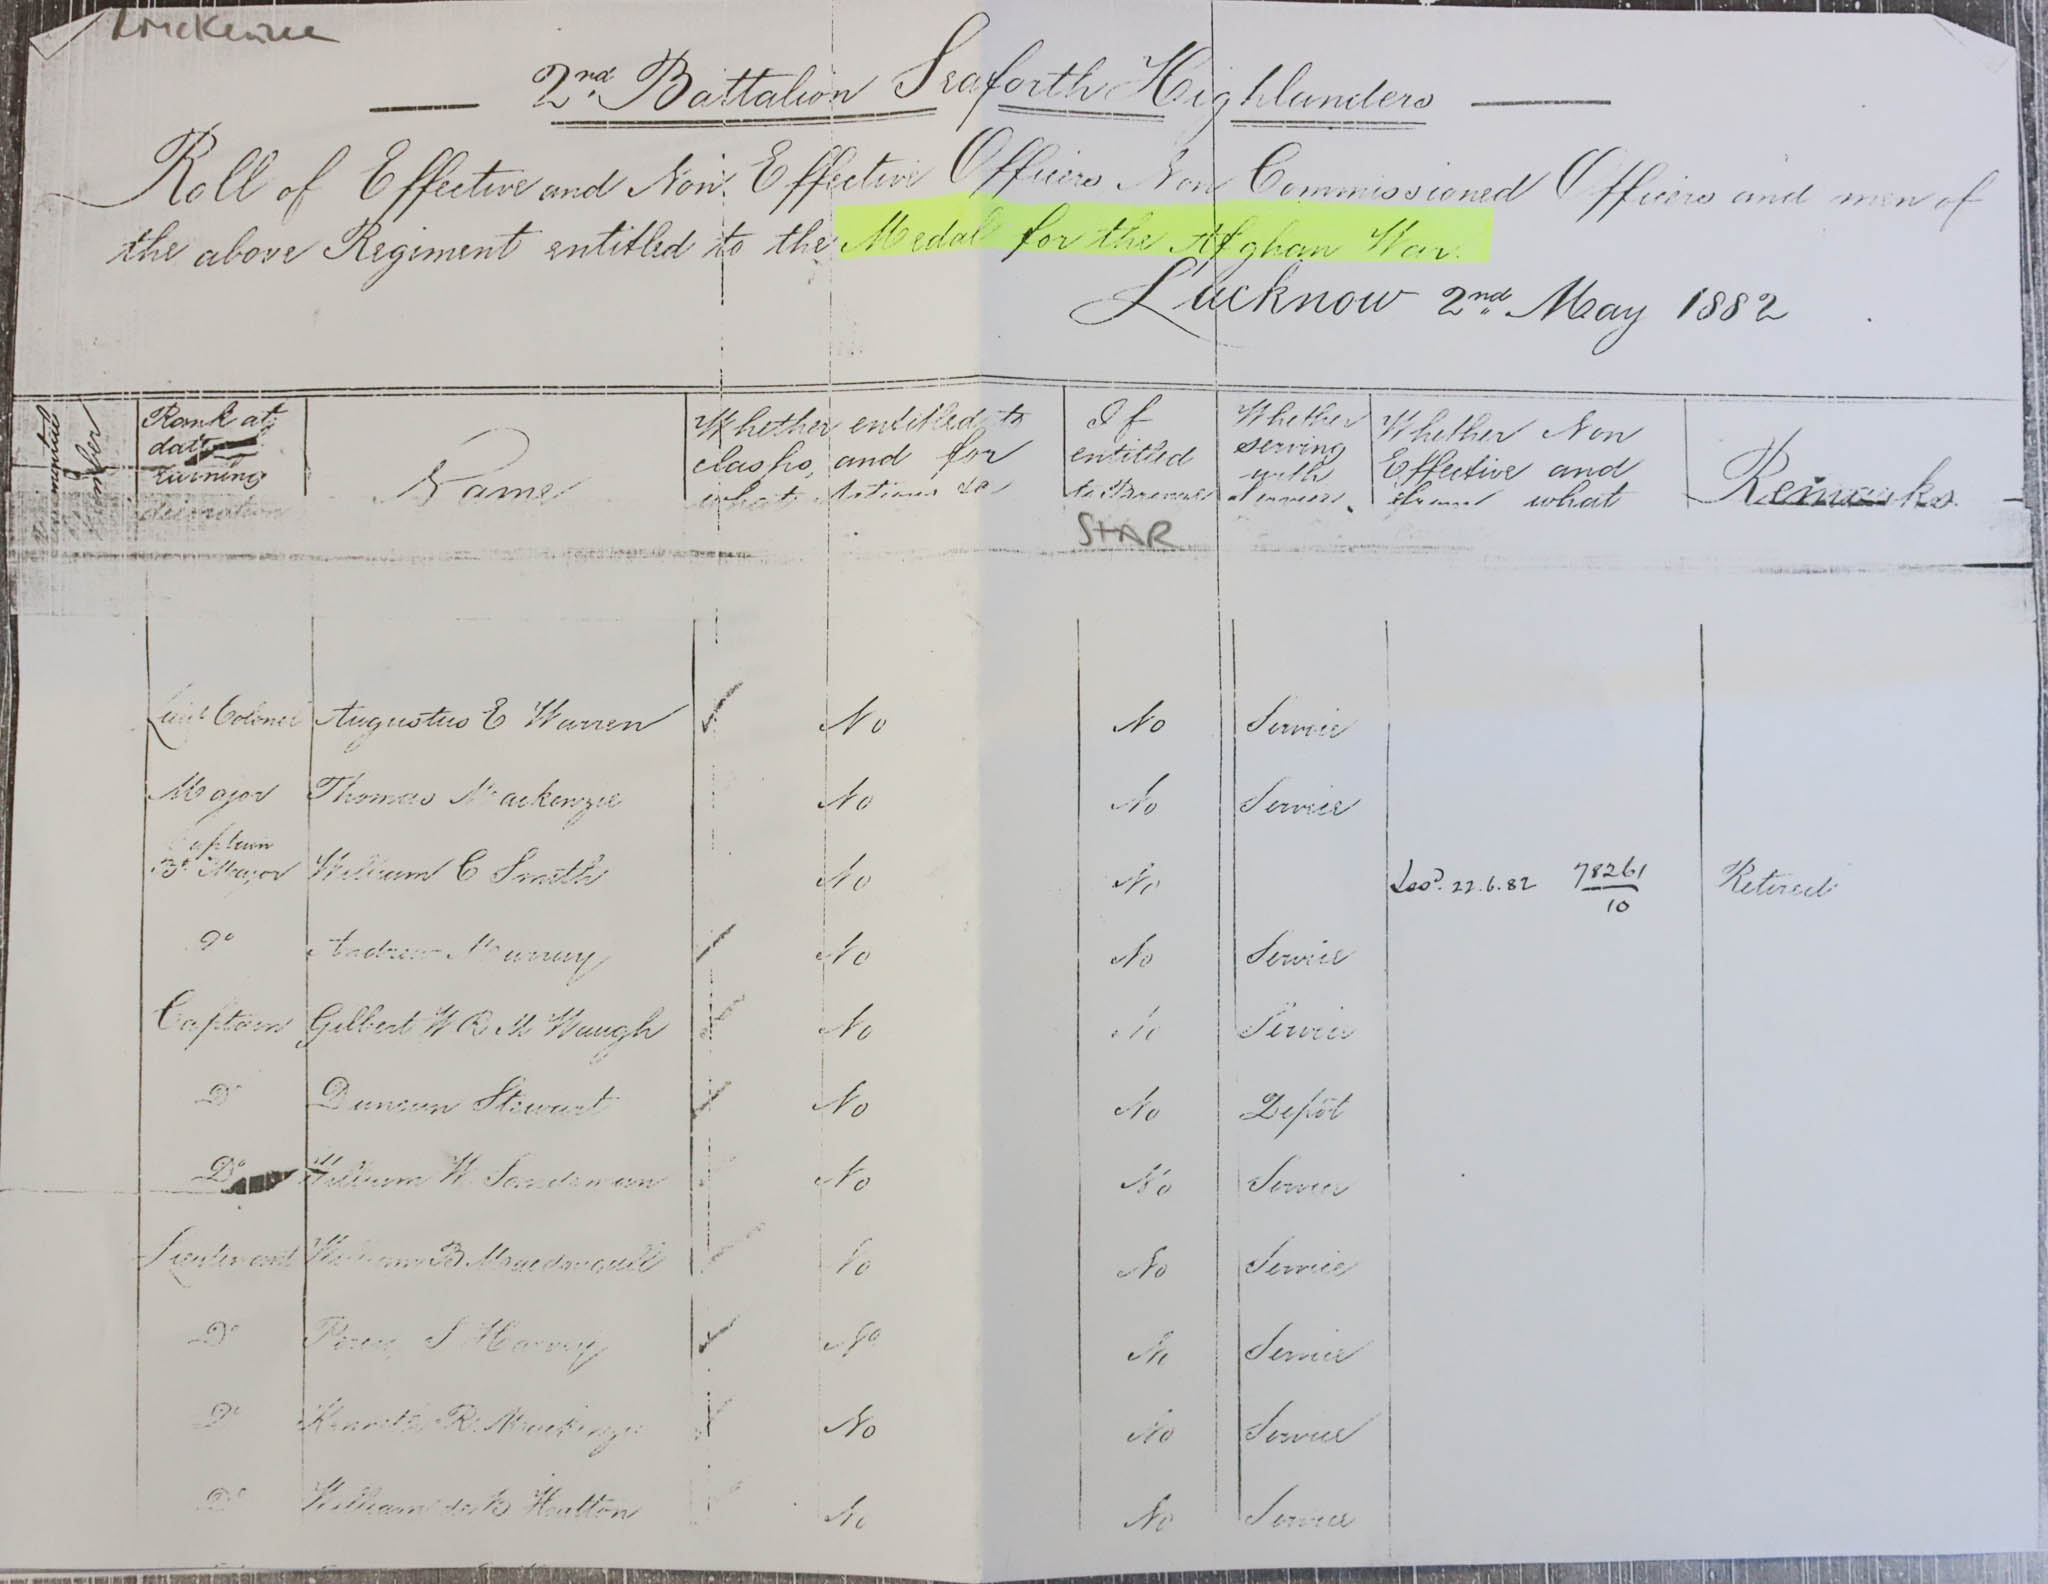 Mckenzie
2nd Battalion Seaforth Highlanders
Roll of Effective and Non Effective Officers Non Commissioned Officers and men of
the above Regiment entitled to the Medal for the Afghan War.
Lucknow 2nd May 1882
Regimental Number
Rank at date earning decoration
Name
Whether entitled to clasps, and for what Actions &c
If entitled to Bronze STAR
Whether serving with Service.
Whether Non Effective and from what
Remarks.
Lieut Colonel Augustus E Warren No No Service
Major Thomas Mackenzie No No Service
Captain Bt Major William C Smith No No 22.6.82 78261/10 Retired
Do Andrew Murray No No Service
Captain Gilbert W R M Waugh No No Service
Do Duncan Stewart No No Depôt
Do William W Sandeman No No Service
Lieutenant William B No No Service
Do Percy S Harvey No No Service
Do Kenneth R Mackenzie No No Service
Do William No No Service